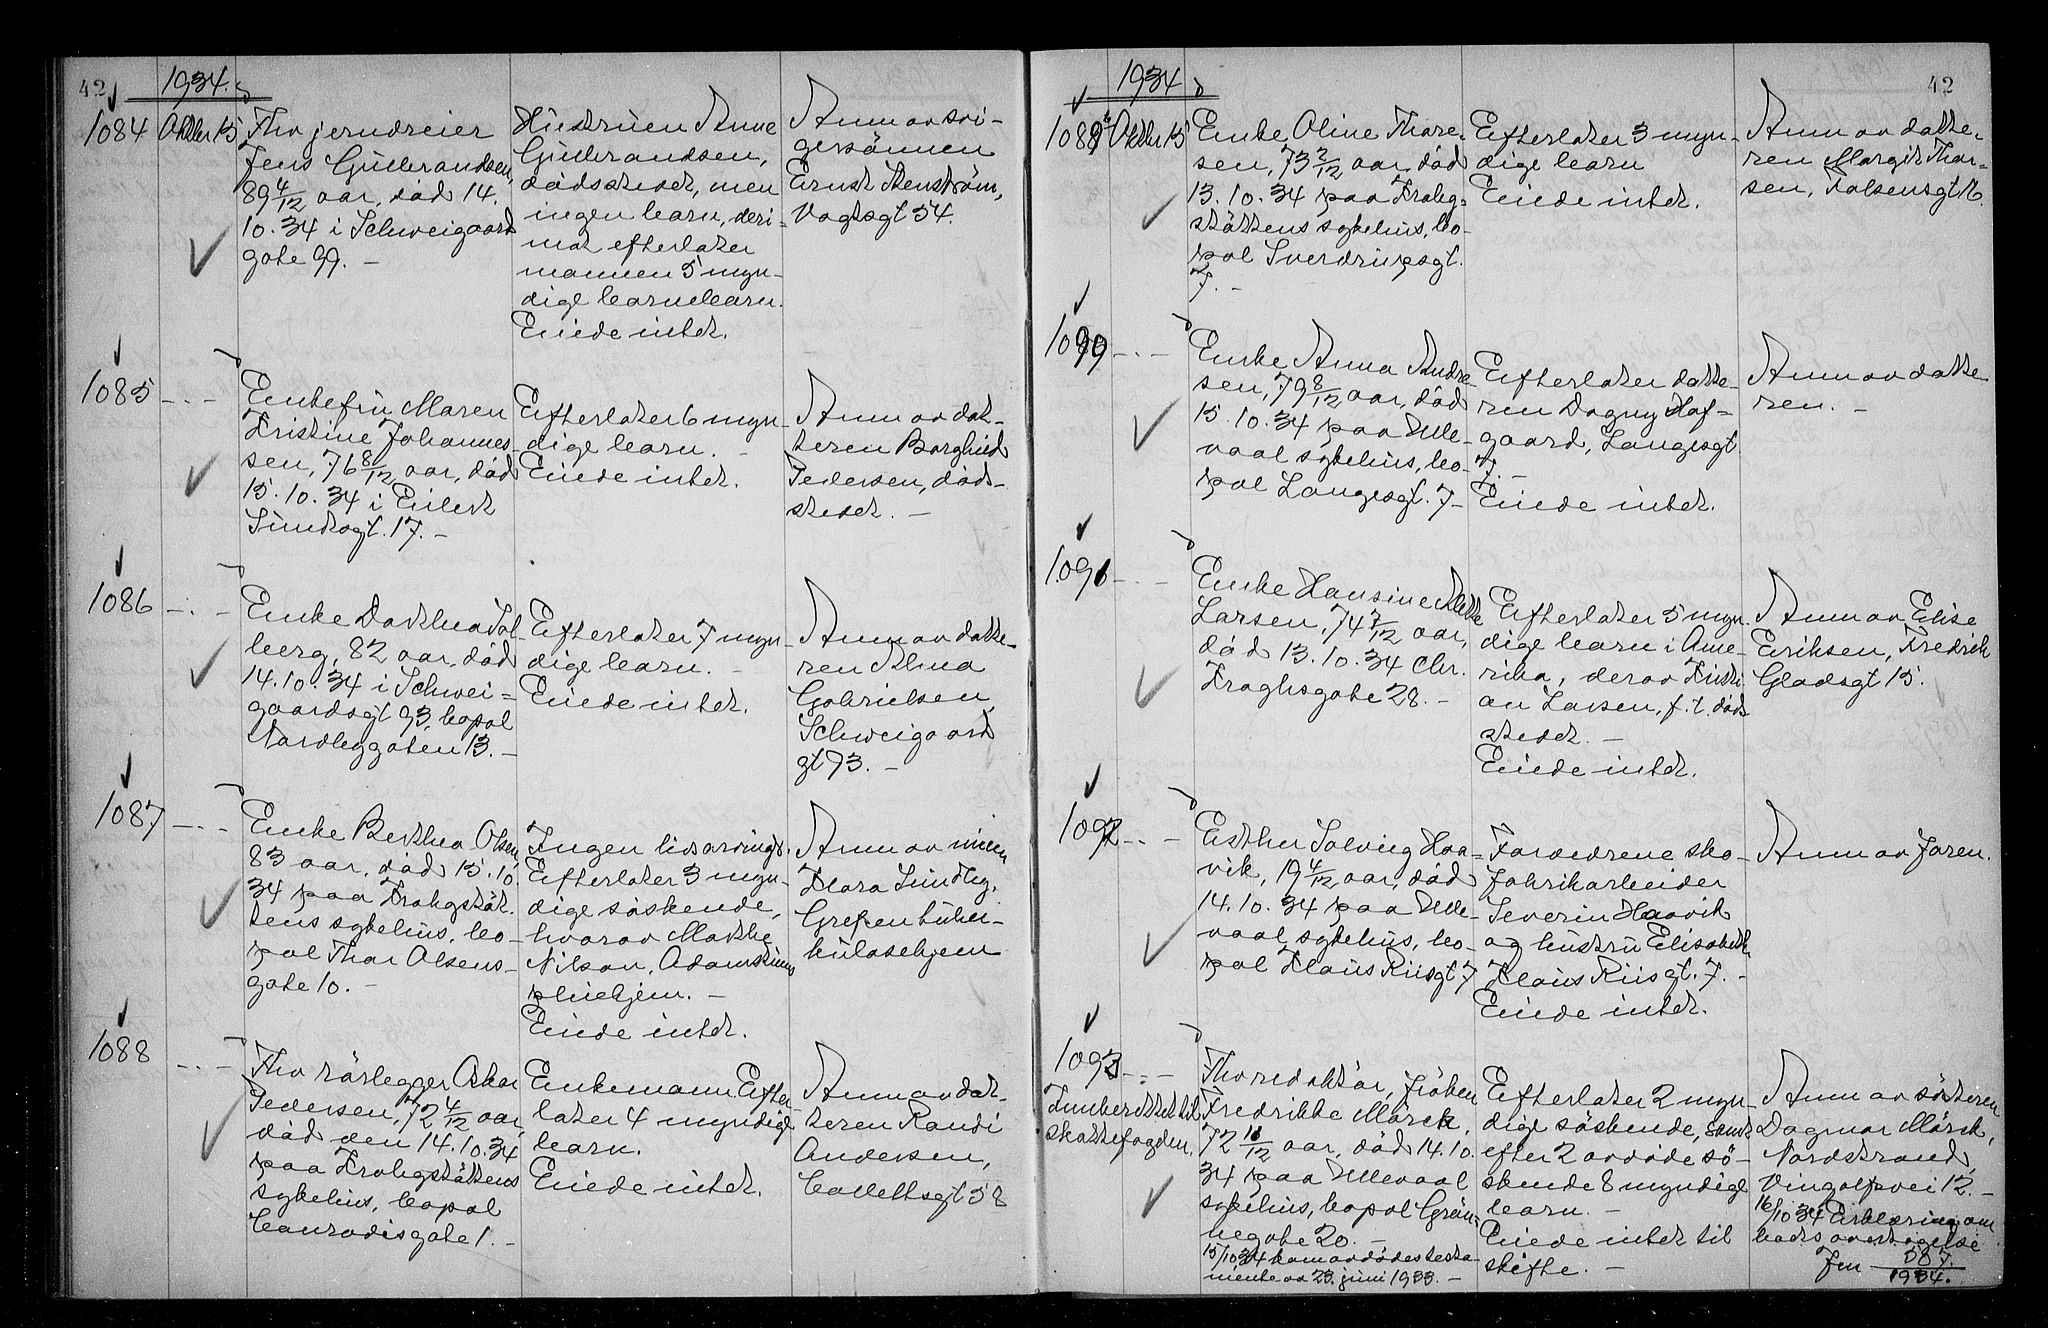 42
1934.
1084
Oktbr 15
Fhv jerndreier
Jens Gulbrandsen,
89 4/12 aar, död 14.
10.34 i Schweigaard
gate 99. –
Hustruen Anne
Gulbrandsen,
dödsstedet, men
ingen barn, deri-
mot efterlater
mannen 5 myn-
dige barnebarn.
Eiede intet.
Anm av svi-
gersönnen
Ernst Stenström,
Vogtsgt 54.
1085
– . –
Enkefru Maren
Kristine Johannes-
sen, 76 8/12 aar, död
15.10.34 i Eilert
Sundtsgt. 17. –
Efterlater 6 myn-
dige barn. –
Eiede intet.
Anm av dat-
teren Borghild
Pedersen, döds-
stedet. –
1086
– . –
Enke Dorthea Sol-
berg, 82 aar, död
14.10.34 i Schwei-
gaardsgt 93, bopol
Nordbygaten 13. –
Efterlater 7 myn-
dige barn. –
Eiede intet.
Anm av datte-
ren Alma
Gabrielsen,
Schweigaard
gt 93. –
1087
– . –
Enke Berthea Olsen,
83 aar, död 15.10.
34 paa Krohgstöt-
tens sykehus, bo-
pol Thor Olsens-
gate 10. –
Ingen livsarving.
Efterlater 3 myn-
dige söskende,
hvorav Marthe
Nilson,
pleiehjem. –
Eiede intet.
Anm av niecen
Klara Lundby,
Grefsen tuber-
kulosehjem
1088
– . –
Fhv rörlegger Oskar
Pedersen, 72 4/12 aar,
död den 14.10.34
paa Krohgstöttens
sykehus, bopol
Conradisgate 1. –
Enkemann Efter-
later 4 myndige
barn.
Eiede intet.
Anm av dat-
teren Randi
Andersen,
Collettsgt 58
1934
42
1089
Oktbr 15
Enke Oline Thore-
sen, 73 2/12 aar, död
13.10.34 paa Krohg-
stöttens sykehus, bo-
pol Sverdrupsgt.
7. –
Efterlater 3 myn-
dige barn
Eiede intet.
Anm av datte-
ren Margit Thor-
sen, Falsensgt 16.
1090
– . –
Enke Anna Andre-
sen, 79 8/12 aar, död
15.10.34 paa Ulle-
vaal sykehus, bo-
pol Langesgt. 7 –
Efterlater datte-
ren Dagny Haf-
gaard, Langesgt
7. –
Eiede intet.
Anm av datte-
ren. –
1091
– . –
Enke Hansine Mette
Larsen, 74 7/12 aar,
död 13.10.34 Chr.
Kroghsgate 28. –
Efterlater 5 myn-
dige barn i Ame-
rika, derav Kristi-
an Larsen, f.t. döds-
stedet. –
Eiede intet.
Anm av Elise
Eriksen, Fredrik
Gladsgt 15.
1092
– . –
Esther Solveig Haa-
vik, 19 4/12 aar, död
14.10.34 paa Ulle-
vaal sykehus, bo-
pol Klaus Riisgt 7
Foreldrene sko-
fabrikarbeider
Severin Haavik
og hustru Elisabeth
Klaus Riisgt. 7. –
Eiede intet.
Anm av faren.
1093
– . –
Innberettet til
skattefogden.
Fhv redaktör, fröken
Fredrikke Mörck,
72 10/12 aar, död 14.10.
34 paa Ullevaal
sykehus, bopol Grön-
negate 20. –
15/10 34 kom avdödes testa-
mente av 23. juni 1933. –
Efterlater 2 myn-
dige söskende, samt
efter 2 avdöde sö-
skende 8 myndige
barn. –
Eiede intet til
skifte. –
Anm av sösteren
Dagmar Mörck,
Nordstrand,
Vingolfsvei 12. –
16/10 34 Erklæring om
boets overtagelse
Jnr 587/1934.